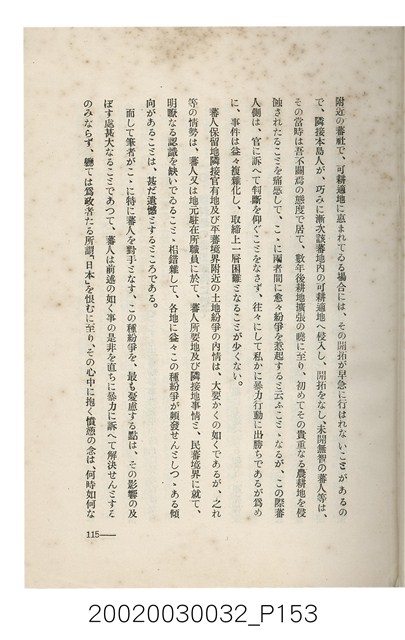 附近の蕃社で、可耕適地に惠まれてゐる場合には、その開拓が早急に行はれないこヾがあるの
で、隣接本島人が、巧みに漸次該蕃地內の可耕適地へ侵入し、開拓をなし、未開無智の蕃人等は、
その當時は吾不關焉の態度で居て、數年後耕地擴張の曉に至り、初めてその貴重なる農耕地を侵
蝕されたるこミを痛感して、こゝに兩者間に愈々紛爭を惹起するミ云ふこミゝなるが、この際蕃
人側は、官に訴へて判斷を仰ぐこミをなさず、往々にして私かに暴力行動に出勝ちであるが爲め
に、事件は益々複雜化し、取締上一層困難ミなるこミが少くない。
蕃人保留地隣接官有地及び平蕃境界附近の土地紛爭の內情は、大要かくの如くであるが、之れ
等の情勢は、蕃人又は地元駐在所職員に於て、蕃人所要地及び隣接地事情ミ、民蕃境界に就て、
明瞭なる認識を缺いてゐるこミゝ相錯雜して、各地に益々この種紛爭が頻發せんミしつゝある傾
向があるこミは、甚だ遺憾ミするミころである。
而して筆者がこゝに特に蕃人を對手ミなす、この種紛爭を、最も憂慮する點は、その影響の及
ぼす處甚大なるこミであつて、蕃人は前述の如く事の是非を直ちに暴力に訴へて解決せんミする
のみならず、軈ては爲政者たる所謂「日本」を恨むに至り、その心中に抱く憤懣の念は、何時如何な
115
20020030032_P153